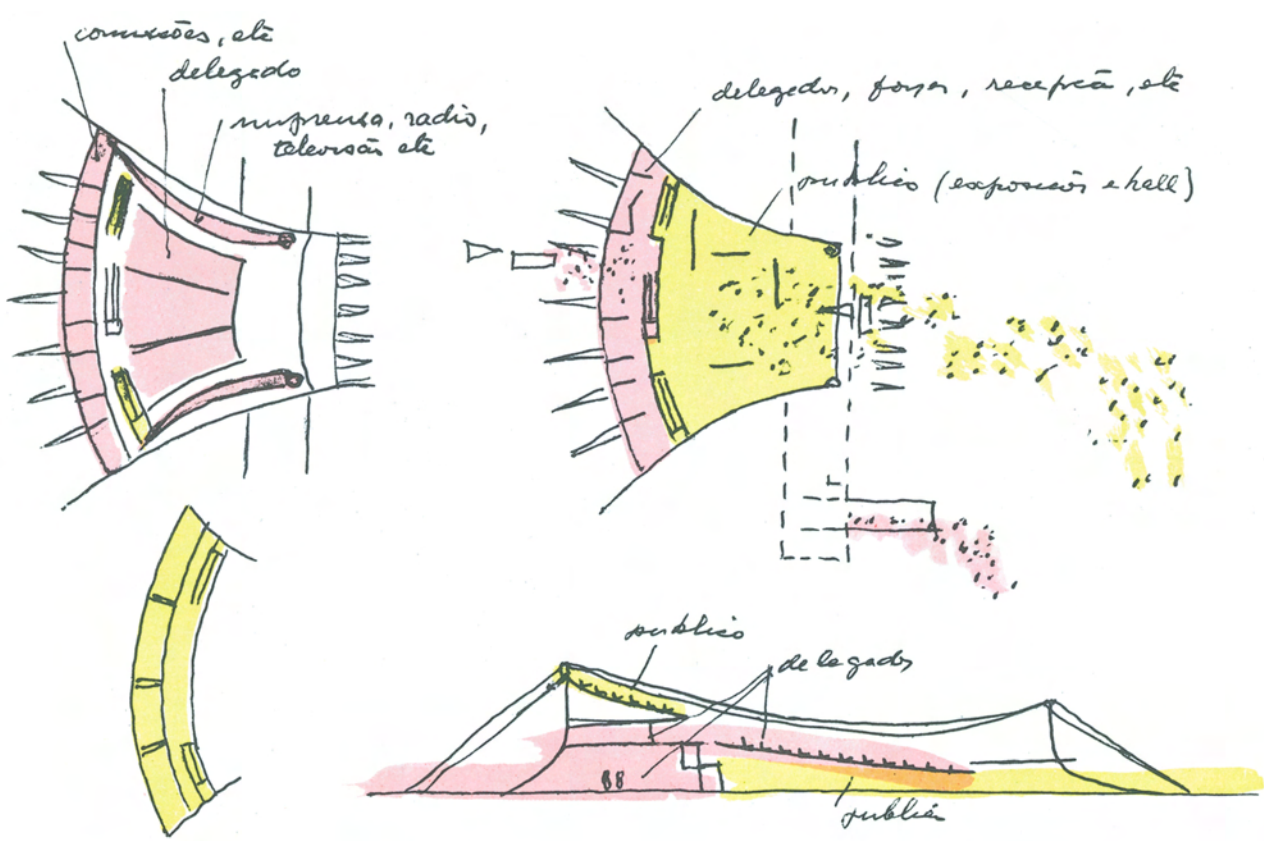 comissões, etc
delegado
imprensa, radio,
televisão etc
delegados, foyer, recepção, etc
publico (exposição e hall)
publico
delegados
publico